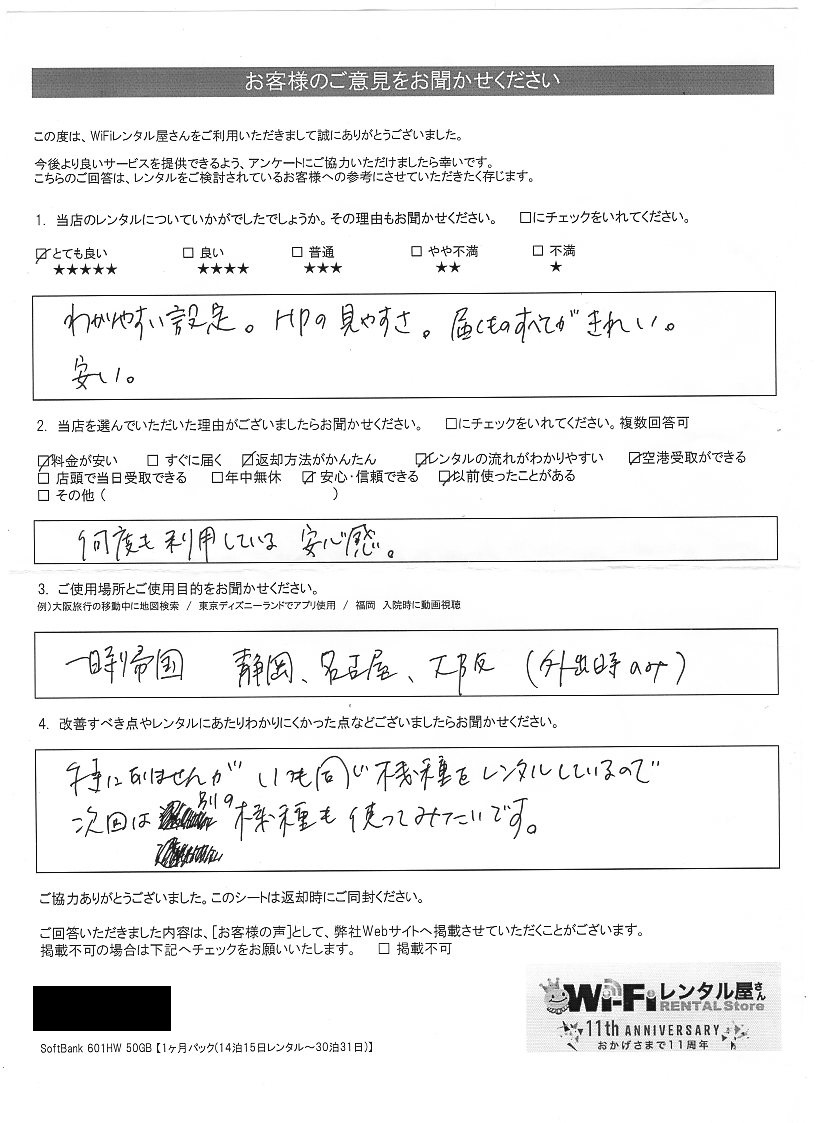 お客様のご意見をお聞かせください
この度は、WiFiレンタル屋さんをご利用いただきまして誠にありがとうございました。
今後より良いサービスを提供できるよう、アンケートにご協力いただけましたら幸いです。
こちらのご回答は、レンタルをご検討されているお客様への参考にさせていただきたく存じます。
1. 当店のレンタルについていかがでしたでしょうか。その理由もお聞かせください。 □にチェックをいれてください。
☑とても良い □ 良い □ 普通 □ やや不満 □ 不満
★★★★★ ★★★★ ★★★ ★★ ★
わかりやすい設定。HPの見やすさ。届くものすべてがきれい。
安い。
2. 当店を選んでいただいた理由がございましたらお聞かせください。 □にチェックをいれてください。複数回答可
☑料金が安い □ すぐに届く ☑返却方法がかんたん ☑レンタルの流れがわかりやすい ☑空港受取ができる
□ 店頭で当日受取できる □年中無休 ☑ 安心・信頼できる ☑以前使ったことがある
□ その他 ( )
何度も利用している 安心感。
3. ご使用場所とご使用目的をお聞かせください。
例)大阪旅行の移動中に地図検索 / 東京ディズニーランドでアプリ使用 / 福岡 入院時に動画視聴
一時帰国 静岡、名古屋、大阪 (外出時のみ)
4. 改善すべき点やレンタルにあたりわかりにくかった点などございましたらお聞かせください。
特にありませんが いつも同じ機種をレンタルしているので
次回は 別の 機種も 使ってみたいです。
ご協力ありがとうございました。このシートは返却時にご同封ください。
ご回答いただきました内容は、[お客様の声]として、弊社Webサイトへ掲載させていただくことがございます。
掲載不可の場合は下記へチェックをお願いいたします。 □ 掲載不可
Wi-Fiレンタル屋さん
RENTAL Store
11th ANNIVERSARY
おかげさまで11周年
SoftBank 601HW 50GB【1ヶ月パック(14泊15日レンタル～30泊31日)】